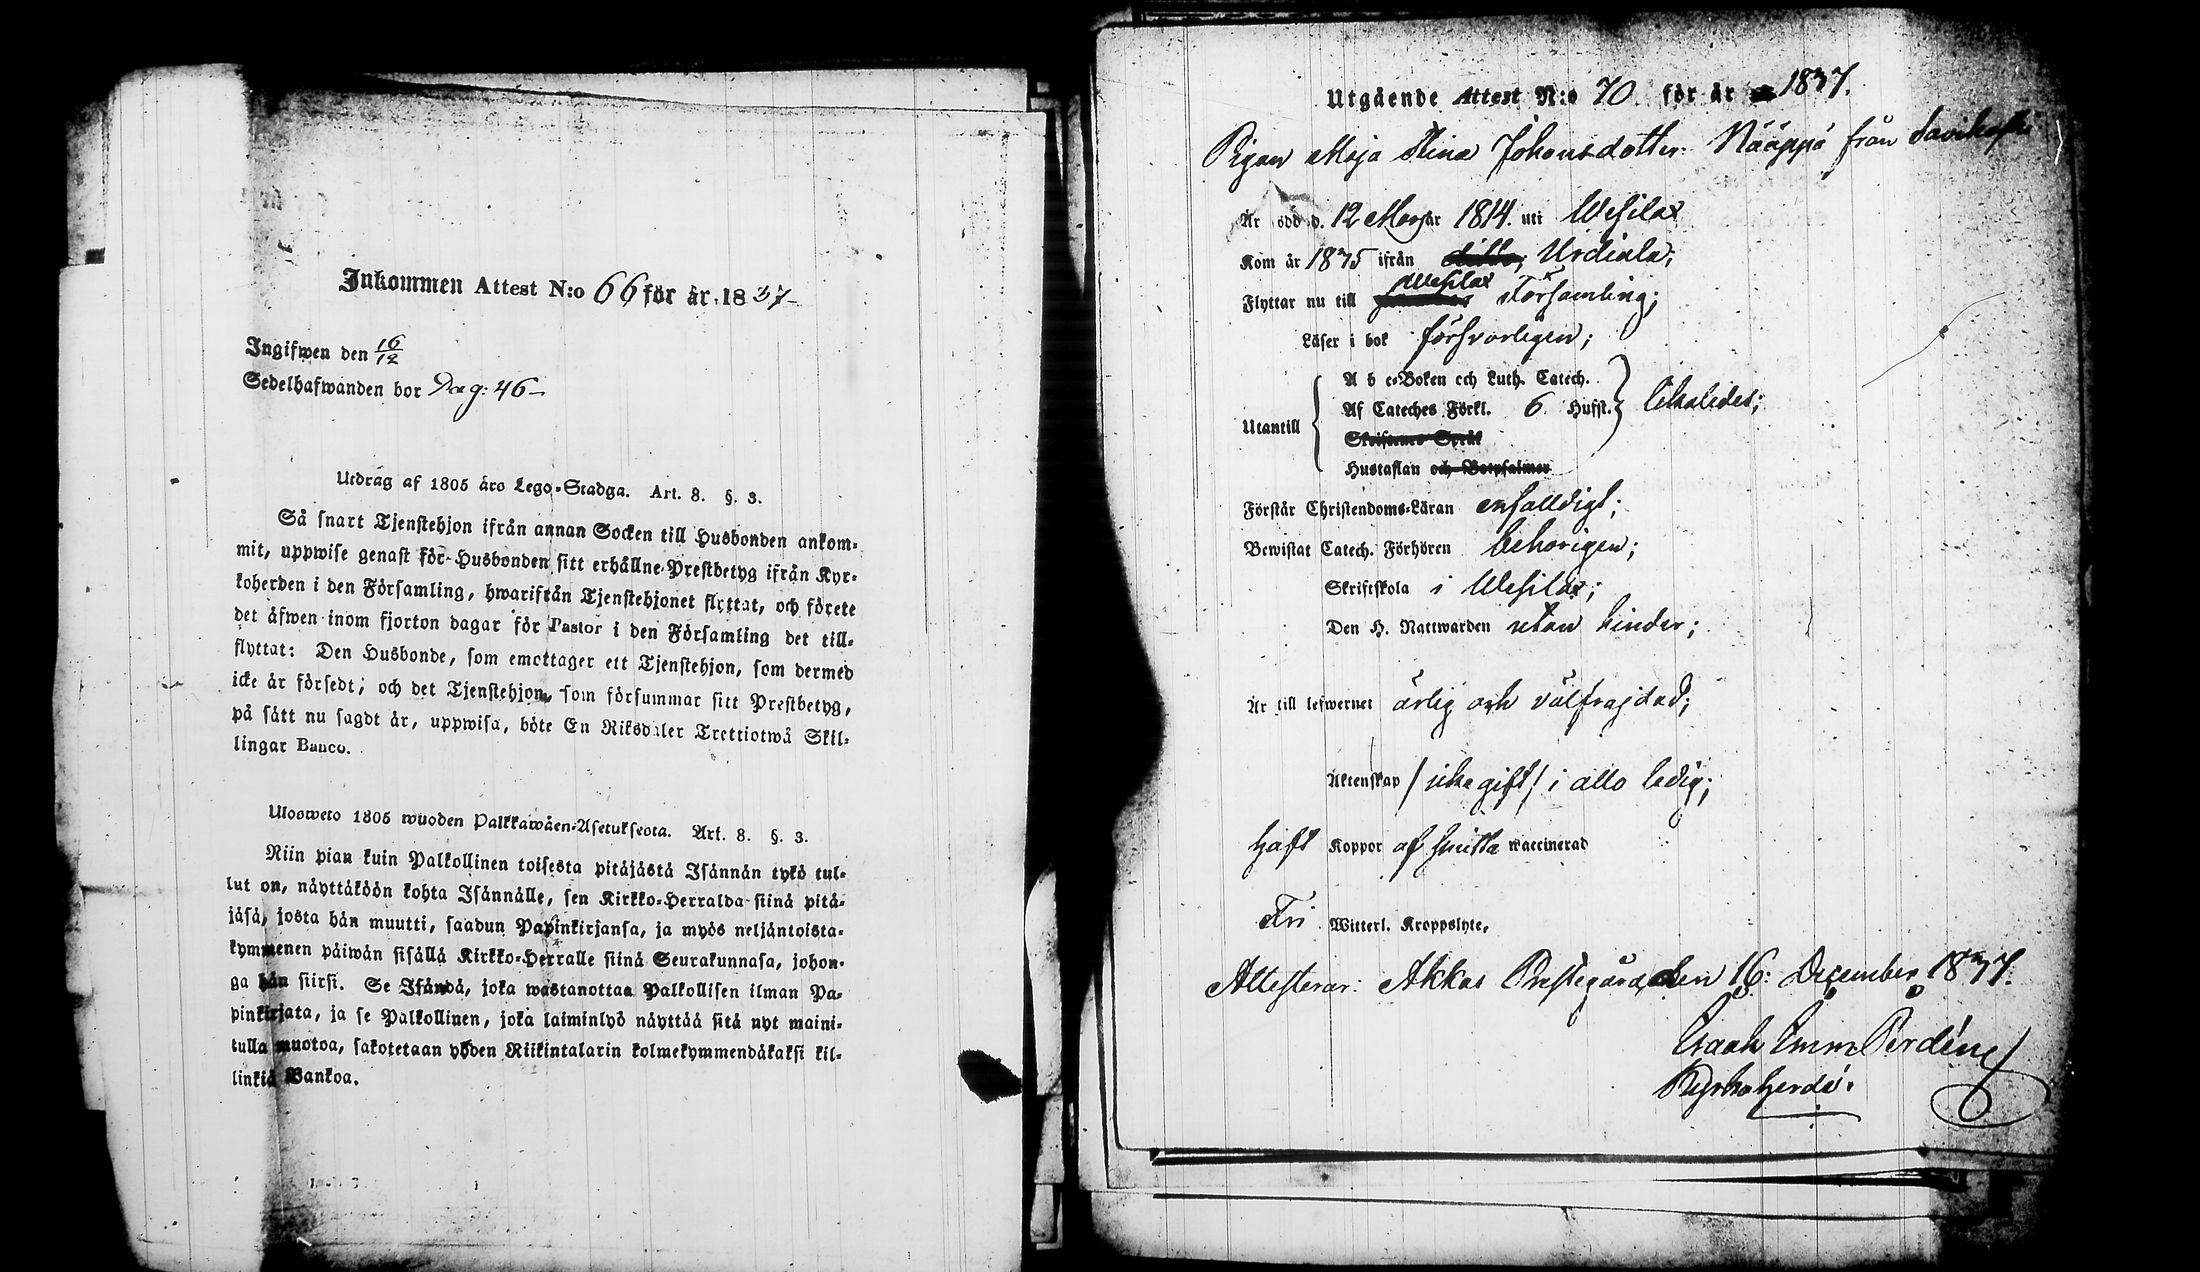 Inkommen Attest N:o 66 för år 1837
Ingifwen den 16/12
Sedelhafwanden bor Pag: 46
Utdrag af 1805 års Lego-Stadga. Art. 8. §. 3.
Så snart Tjenstehjon ifrån annan Socken till Husbonden ankom-
mit, uppwise genast för Husbonden sitt erhållne Prestbetyg ifrån Kyr-
koherden i den Församling, hwarifrån Tjenstehjonet flyttat, och förete
det äfwen inom fjorton dagar för Pastor i den Församling det till-
flyttat: Den Husbonde, som emottager ett Tjenstehjon, som dermed
icke är försedt; och det Tjenstehjon, som försummar sitt Prestbetyg,
på sätt nu sagdt är, uppwisa, böte En Riksdaler Trettiotwå Skil-
lingar Banco.
Ulosweto 1805 wuoden Palkkawäen-Asetuksesta. Art. 8. §. 3.
Niin pian kuin Palkollinen toisesta pitäjästä Isännän tykö tul-
lut on, näyttäköön kohta Isännälle, sen Kirkko-Herralda siinä pitä-
jäsä, josta hän muutti, saadun Papinkirjansa, ja myös neljäntoista-
kymmenen päiwän sisällä Kirkko-Herralle siinä Seurakunnasa, johon-
ga hän siirsi. Se Isändä, joka wastanottaa Palkollisen ilman Pa-
pinkirjata, ja se Palkollinen, joka laiminlyö näyttää sitä nyt maini-
tulla muotoa, sakotetaan yhden Riikintalarin kolmekymmendäkaksi kil-
linkiä Bankoa.
Utgående Attest N:o 70 för år 1837.
Pigan Maja Stina Johansdotter Nääppä från Savikoski
Är född d. 12 Mars år 1814. uti Wesilax
Kom år 1835 ifrån ditto, Urdiala;
Flyttar nu till Wesilax Församling;
Läser i bok försvarligen;
Utantill
A b c-Boken och Luth. Catech.
Af Cateches Förkl. 6 Hufst. likaledes;
Skriftenes Språk
Hustaflan och Botpsalmer
Förstår Christendoms-Läran enfalldigt;
Bewistat Catech. Förhören behörigen;
Skriftskola i Wesilax;
Den H. Nattwarden utan hinder;
Är till lefwernet ärlig och välfrajdad;
Äktenskap /icke gift/ i allo ledig;
haft Koppor af smitta waccinerad
Fri Witterl. Kroppslyte,
Attesterar Akkas Prestegård, den 16: December 1837.
Isaak Emm Perdén
Kyrkoherde.